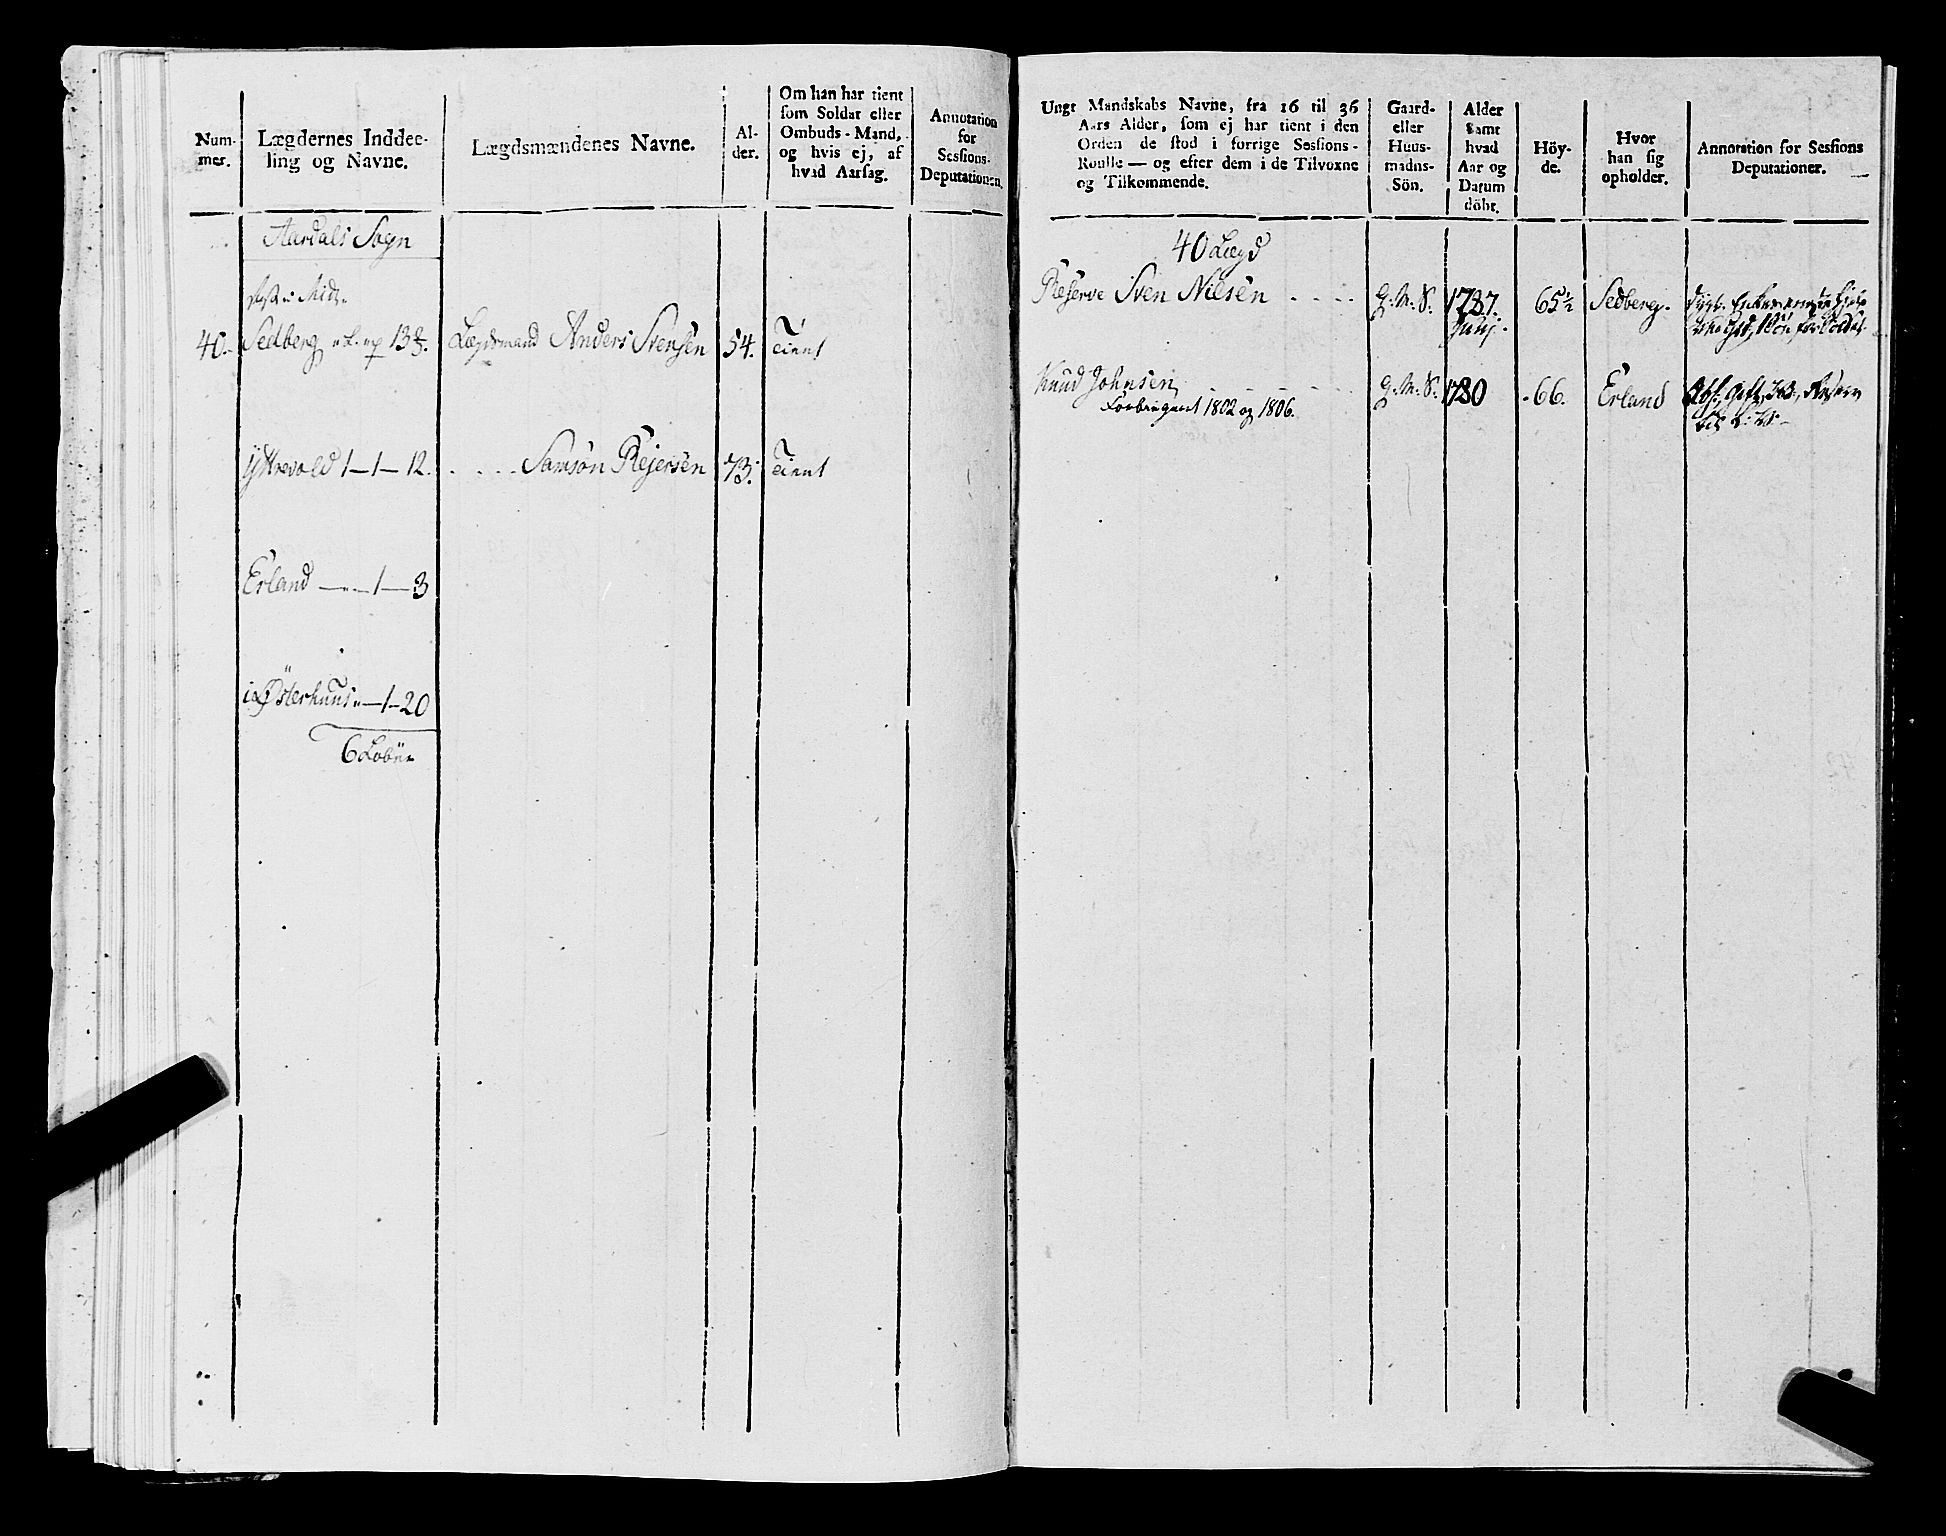 Num-
mer.
Lægdernes Inddee-
ling og Navne.
Lægdsmændenes Navne.
Al-
der.
Om han har tient
som Soldat eller
Ombuds-Mand,
og hvis ej, af
hvad Aarsag.
Annotation
for
Sessions-
Deputationen.
Aardals Sogn
40.
Sedberg 13
Lægdsmand Anders Svensen
54.
Tient
Yttrevold 1-1-12.
Samson Rejersen
73.
Tient
Erland 1-3
Østerhuus 1-20
6 Løbũr
Ungt Mandskabs Navne, fra 16 til 36
Aars Alder, som ej har tient i den
Orden de stod i forrige Sessions-
Roulle — og efter dem i de Tilvoxne
og Tilkommende.
Gaard-
eller
Huus-
madns-
Sön.
Alder
samt
hvad
Aar og
Datum
döbt.
Höy-
de.
Hvor
han sig
opholder.
Annotation for Sessions
Deputationer.
40 Lægd
Reserve Sven Nilsen
G. M. S.
1787.
July.
65½
Sedberg.
Knud Johnsen
G. M. S.
1780
66.
Erland
Forbigaaet 1802 og 1806.